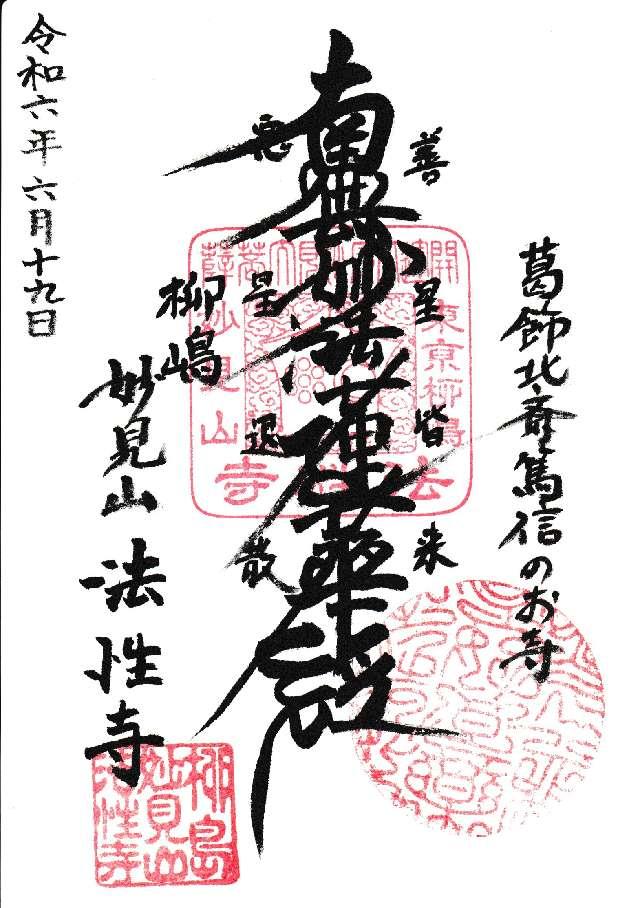 葛飾北斎篤信のお寺
善星皆来
南無妙法蓮華経
悪星退散
柳嶋
妙見山
法性寺
令和六年六月十九日
開
東京柳嶋
法
妙見山
寺
柳島
妙見山
法性寺